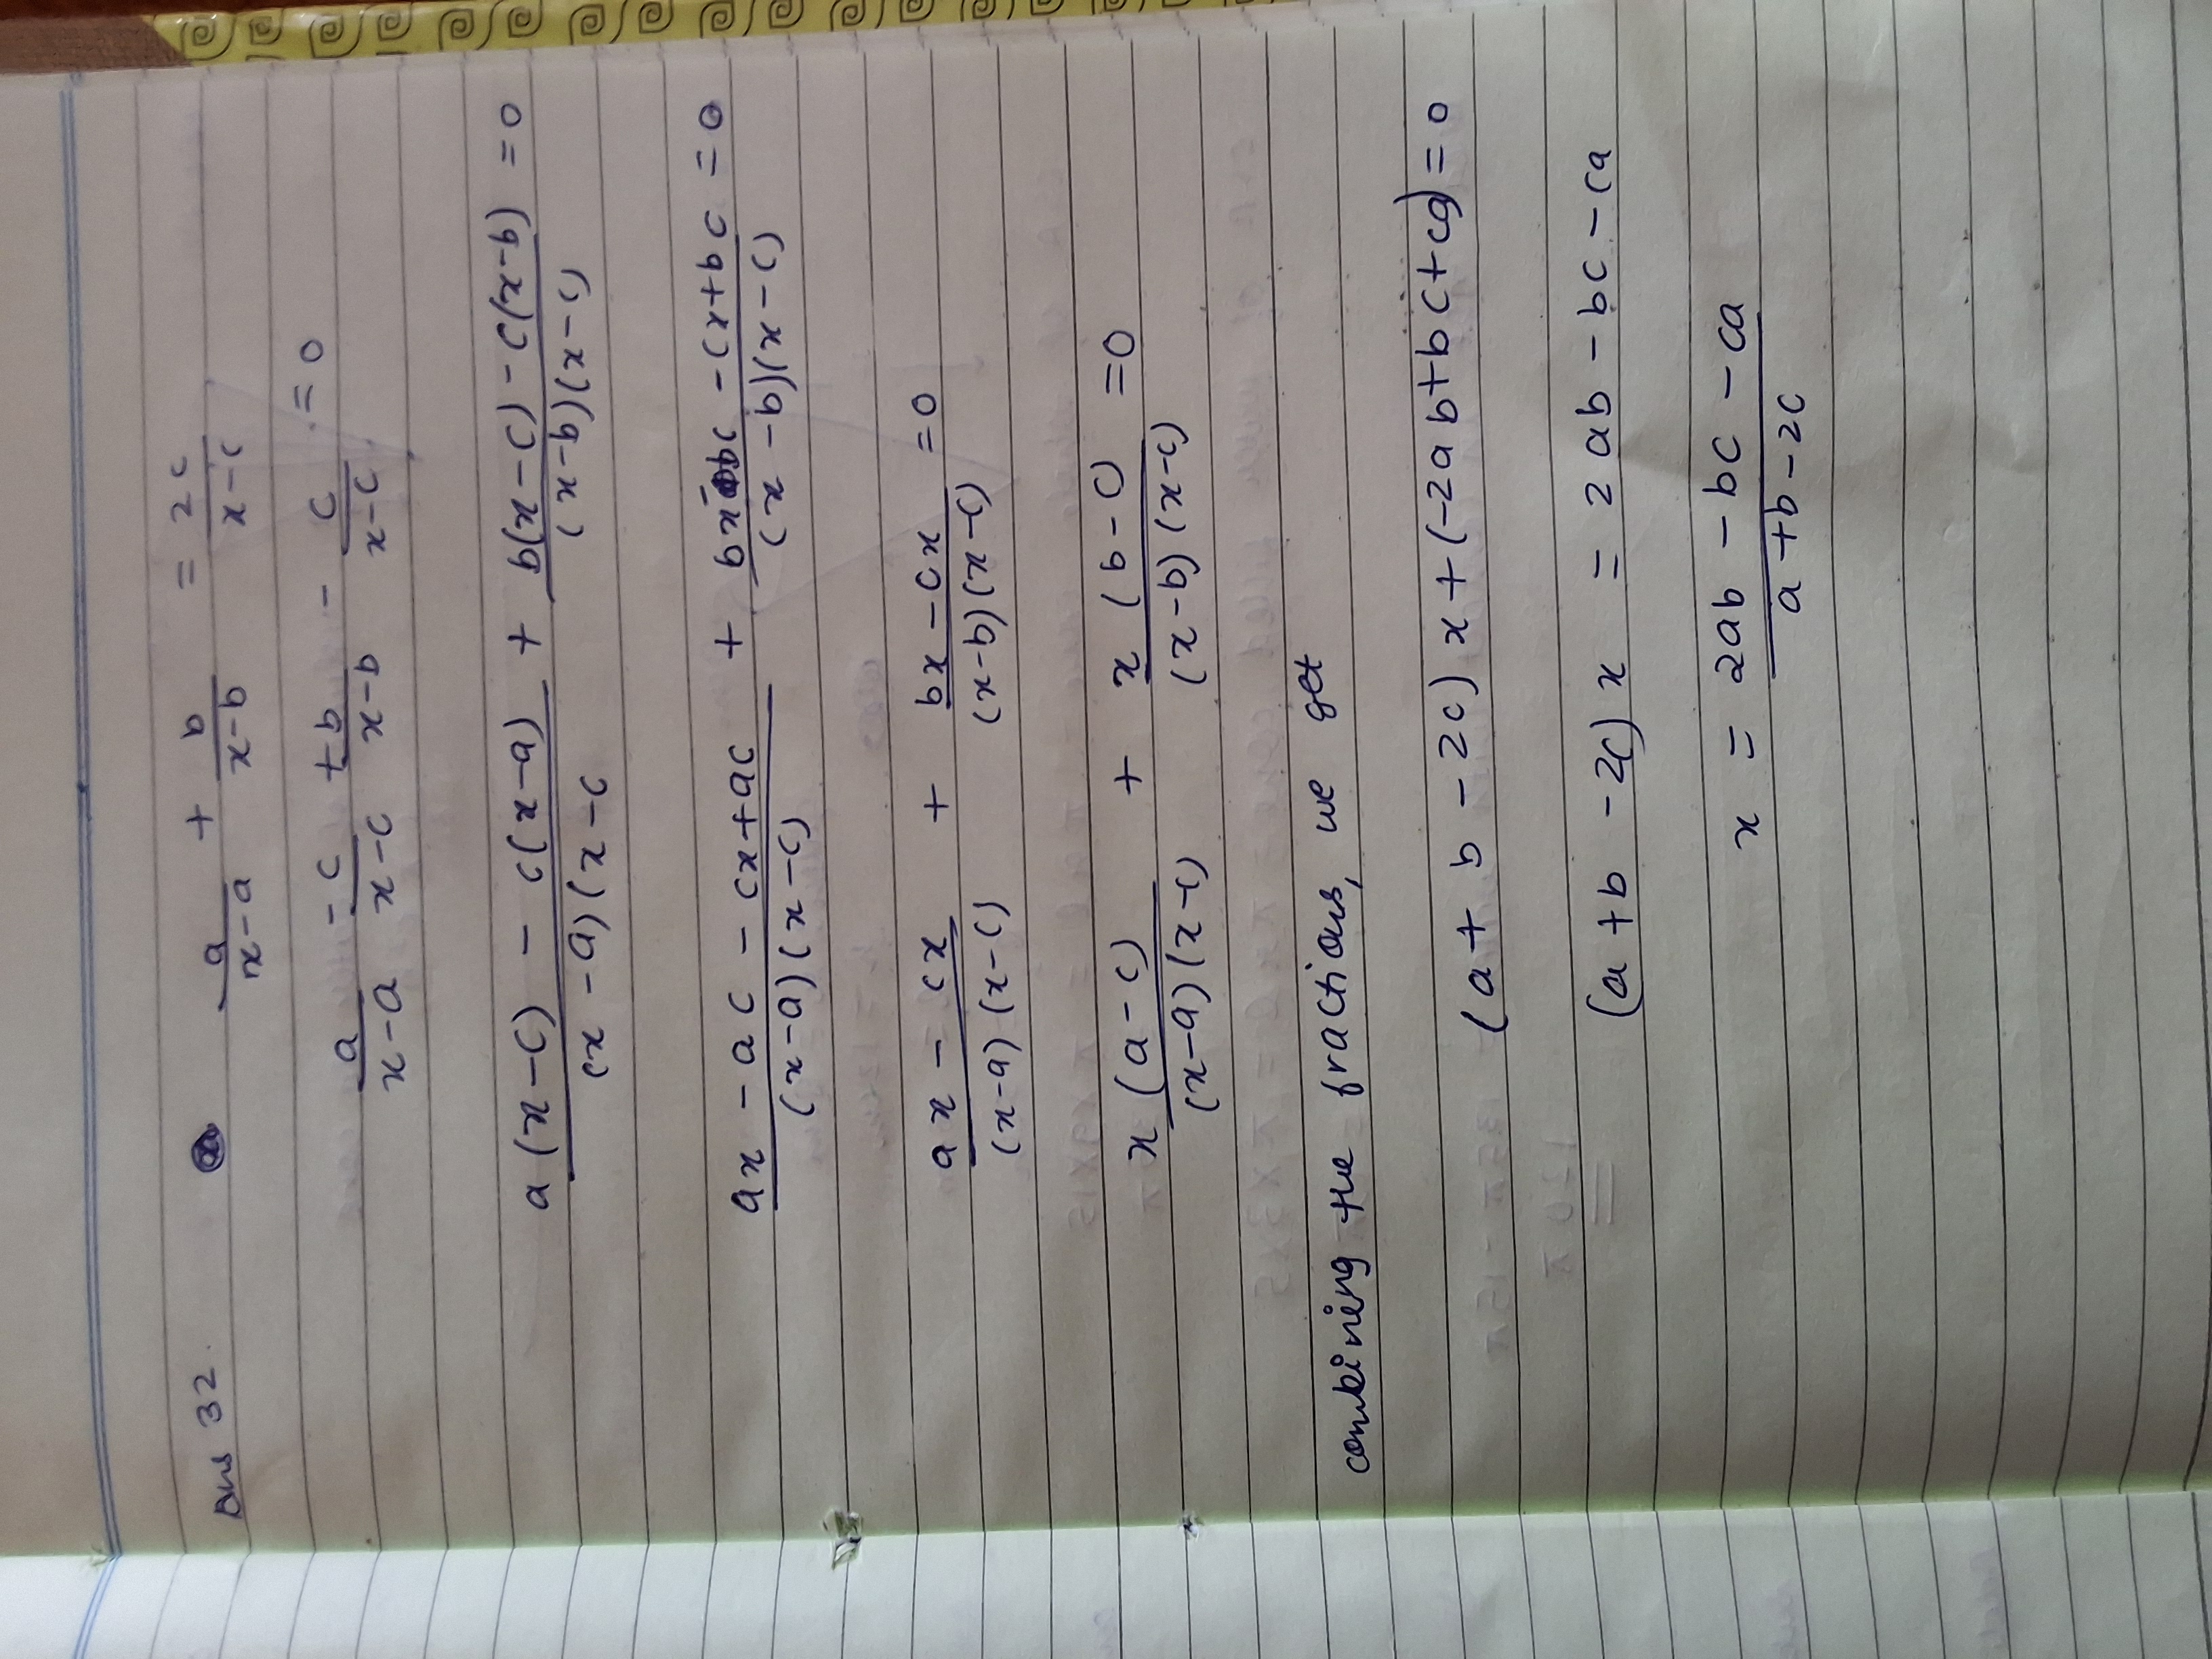 Ans 32. a/x-a + b/x-b = 2c/x-c
a/x-a - c/x-c + b/x-b - c/x-c = 0
a(x-c) - c(x-a)/(x-a)(x-c + b(x-c) - c(x-b)/(x-b)(x-c) = 0
ax - ac - cx+ac/(x-a)(x-c) + bx-bc - cx+bc/(x-b)(x-c) = 0
ax - cx/(x-a)(x-c) + bx-cx/(x-b)(x-c) = 0
x(a-c)/(x-a)(x-c) + x(b-c)/(x-b)(x-c) = 0
combining the fractions, we get
(a+b-2c)x+(-2ab+bc+ca)=0
(a+b-2c)x = 2ab-bc-ca
x = 2ab-bc-ca/a+b-2c